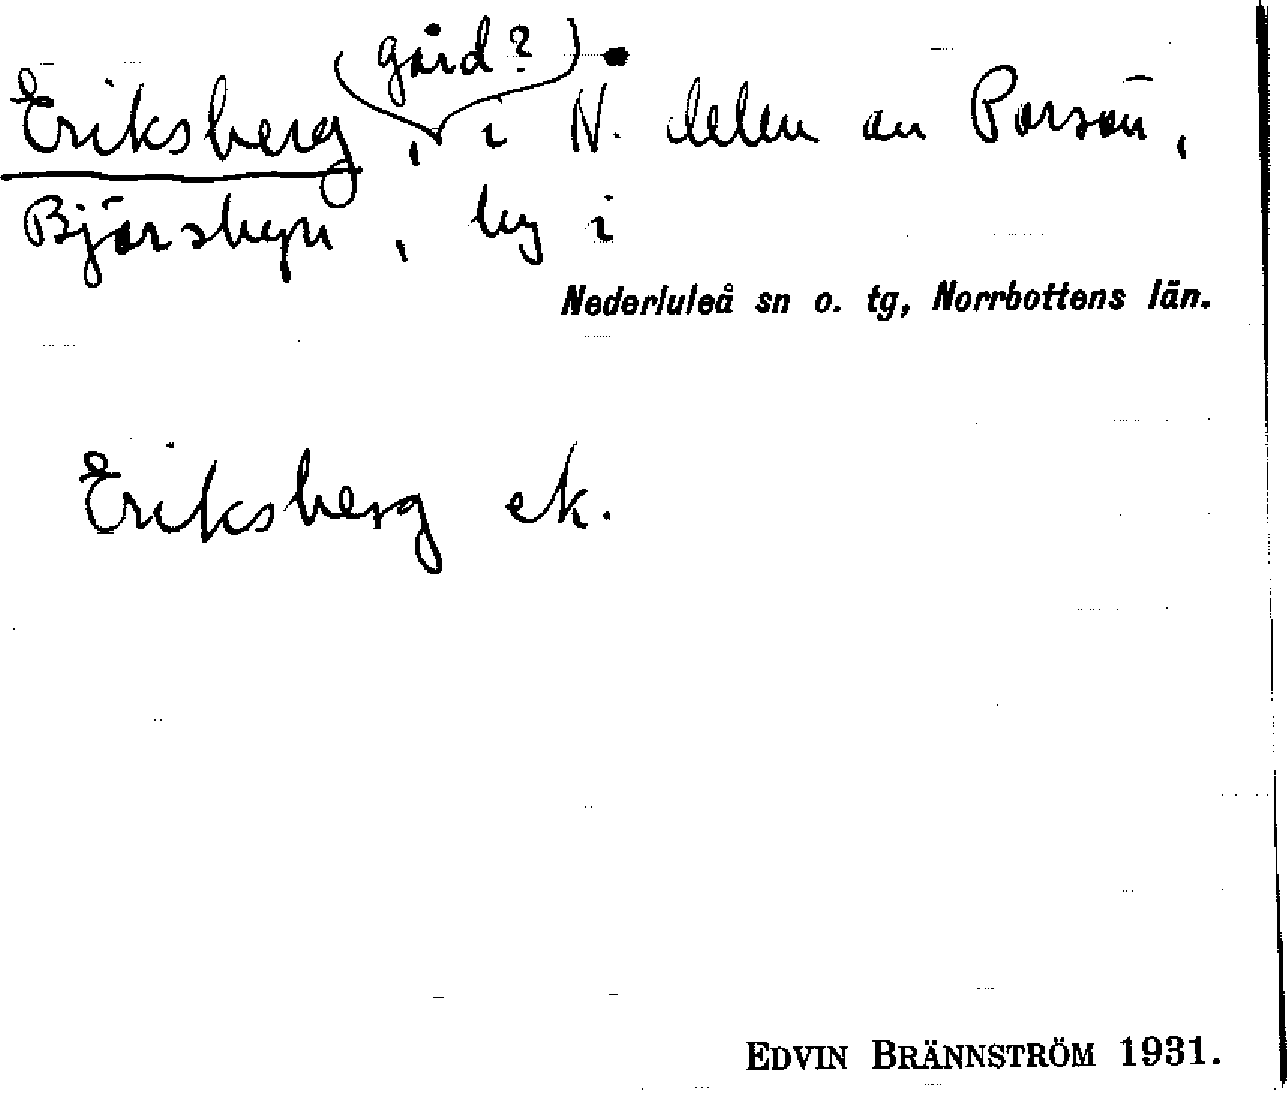 (gård?)
Eriksberg, i N. delen av Porsön,
Björsbyn, by i
Nederluleå sn o. tg, Norrbottens län.
Eriksberg ek.
EDVIN BRÄNNSTRÖM 1931.